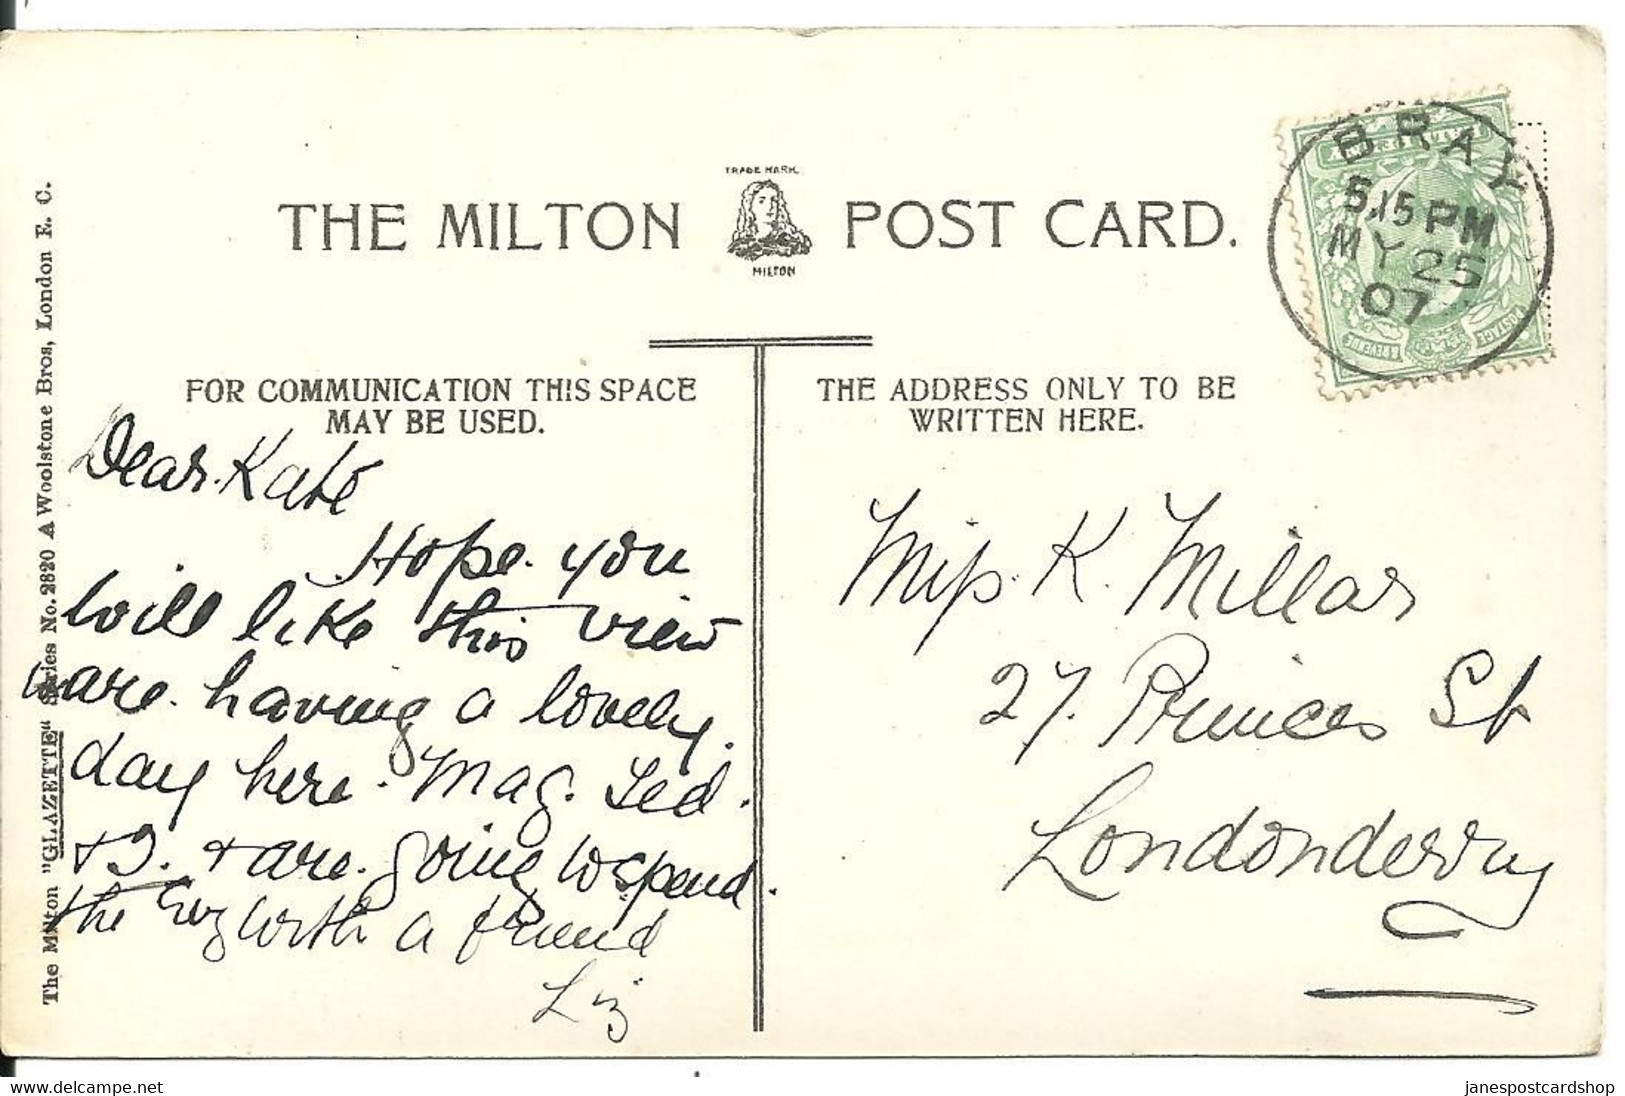 TRADE MARK.
THE MILTON POST CARD.
MILTON
BRAY
5.15 PM
MY 25
07
POSTAGE & REVENUE
FOR COMMUNICATION THIS SPACE
MAY BE USED.
THE ADDRESS ONLY TO BE
WRITTEN HERE.
The Milton "GLAZETTE" Series No. 2820 Woolstone Bros, London E. C.
Dear Kate
Hope you
will like this view
are having a lovely
day here. Mag. Ted.
+ I. + are going to spend.
the Evg with a friend
Liz
Miss K. Millar
27. Princes St
Londonderry
www.delcampe.net
janespostcardshop